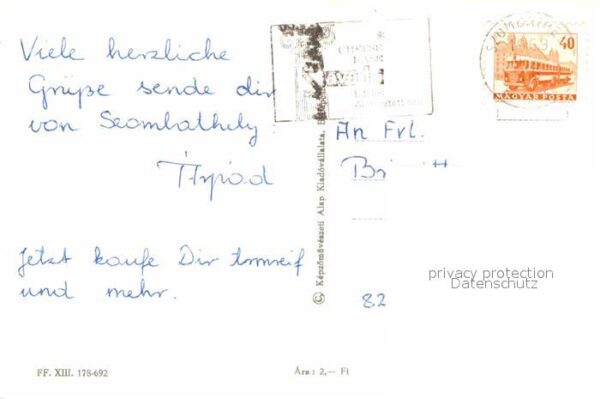 Viele herzliche
Grüße sende dir
von Szombathely
Árpád
Jetzt kaufe Dir
und mehr.
An Frl.
82
40
MAGYAR POSTA
privacy protection
Datenschutz
© Képzőművészeti Alap Kiadóvállalata,
FF. XIII. 178-692
Ára: 2,— Ft